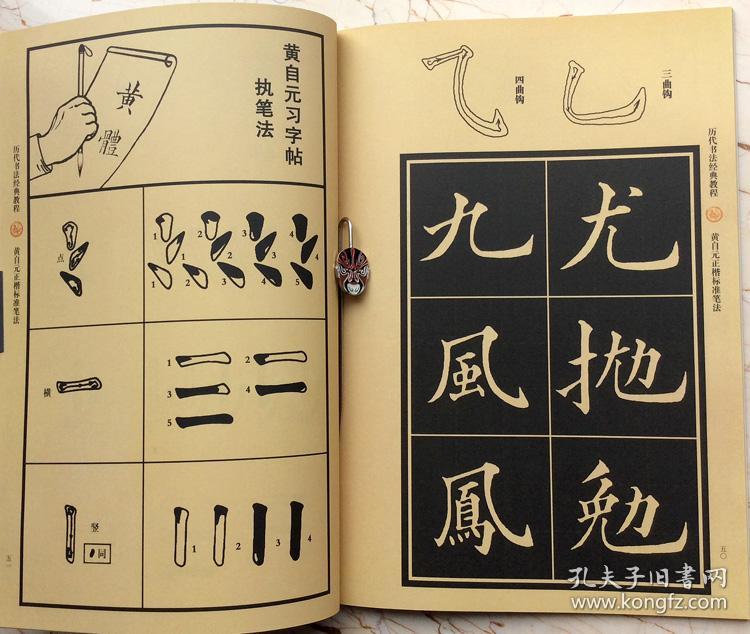 三曲钩
四曲钩
尤
抛
勉
九
風
鳳
历代书法经典教程
黄自元正楷标准笔法
五〇
黄自元习字帖
执笔法
黄
體
点
1 2 3 4
1 2 3 4 5
横
1 2
3 4
5
竖
同
1 2 3 4
历代书法经典教程
黄自元正楷标准笔法
五一
孔夫子旧書网
www.kongfz.com